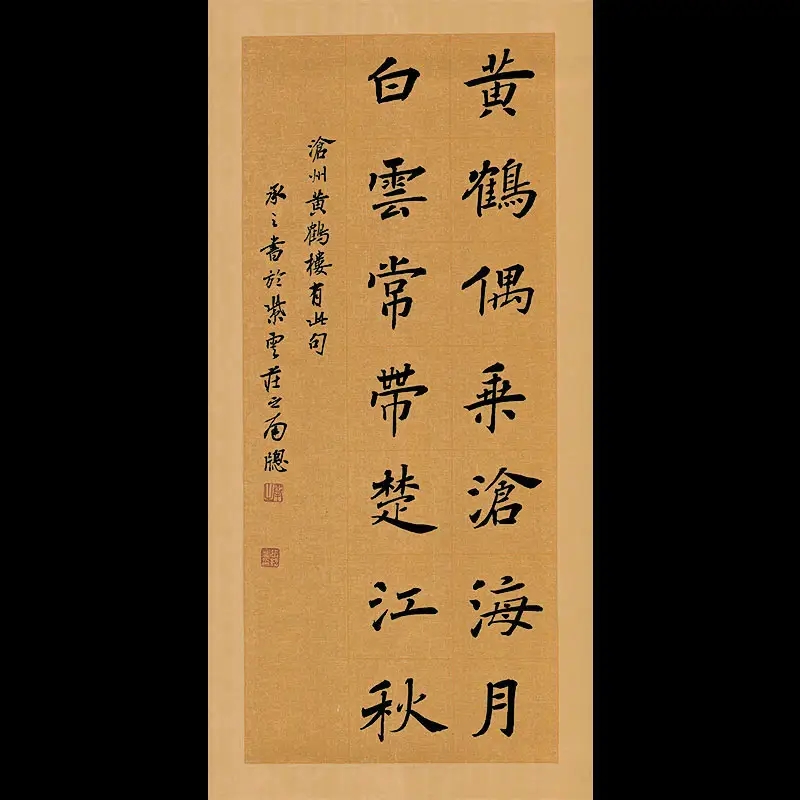 黄鶴偶乘滄海月
白雲常帶楚江秋
滄州黄鶴樓有此句
承之書於紫雲莊之南牕